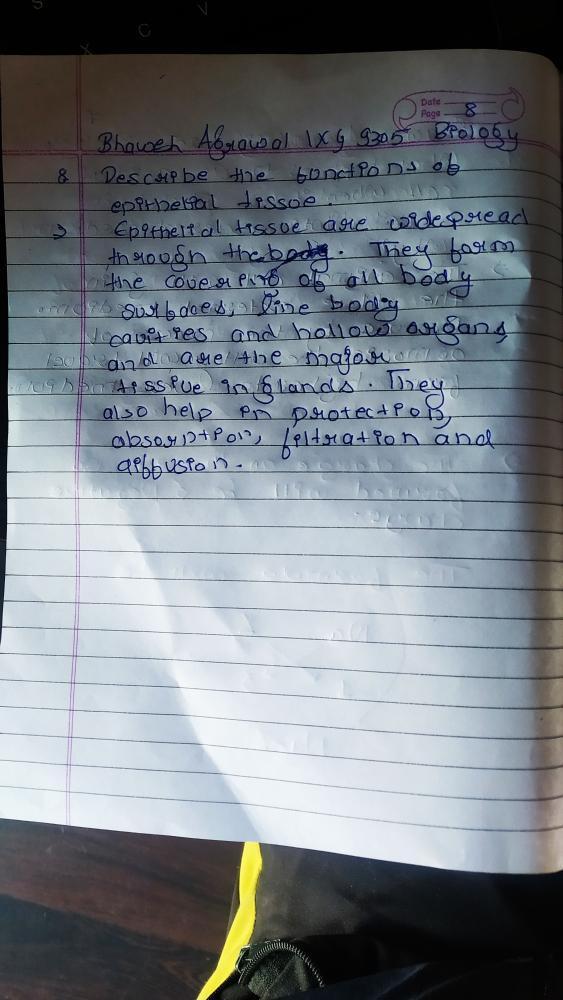 Date
Page 8
Bhavesh Agrawal IX G 9305 Biology
8 Describe the functions of
epithelial tissoe.
→ Epithelial tissue are widespread
through the body. They form
the covering of all body
surfaces, line body
cavities and hollow organs
and are the major
tissue in glands. They
also help in protection,
absorption, filtration and
diffusion.